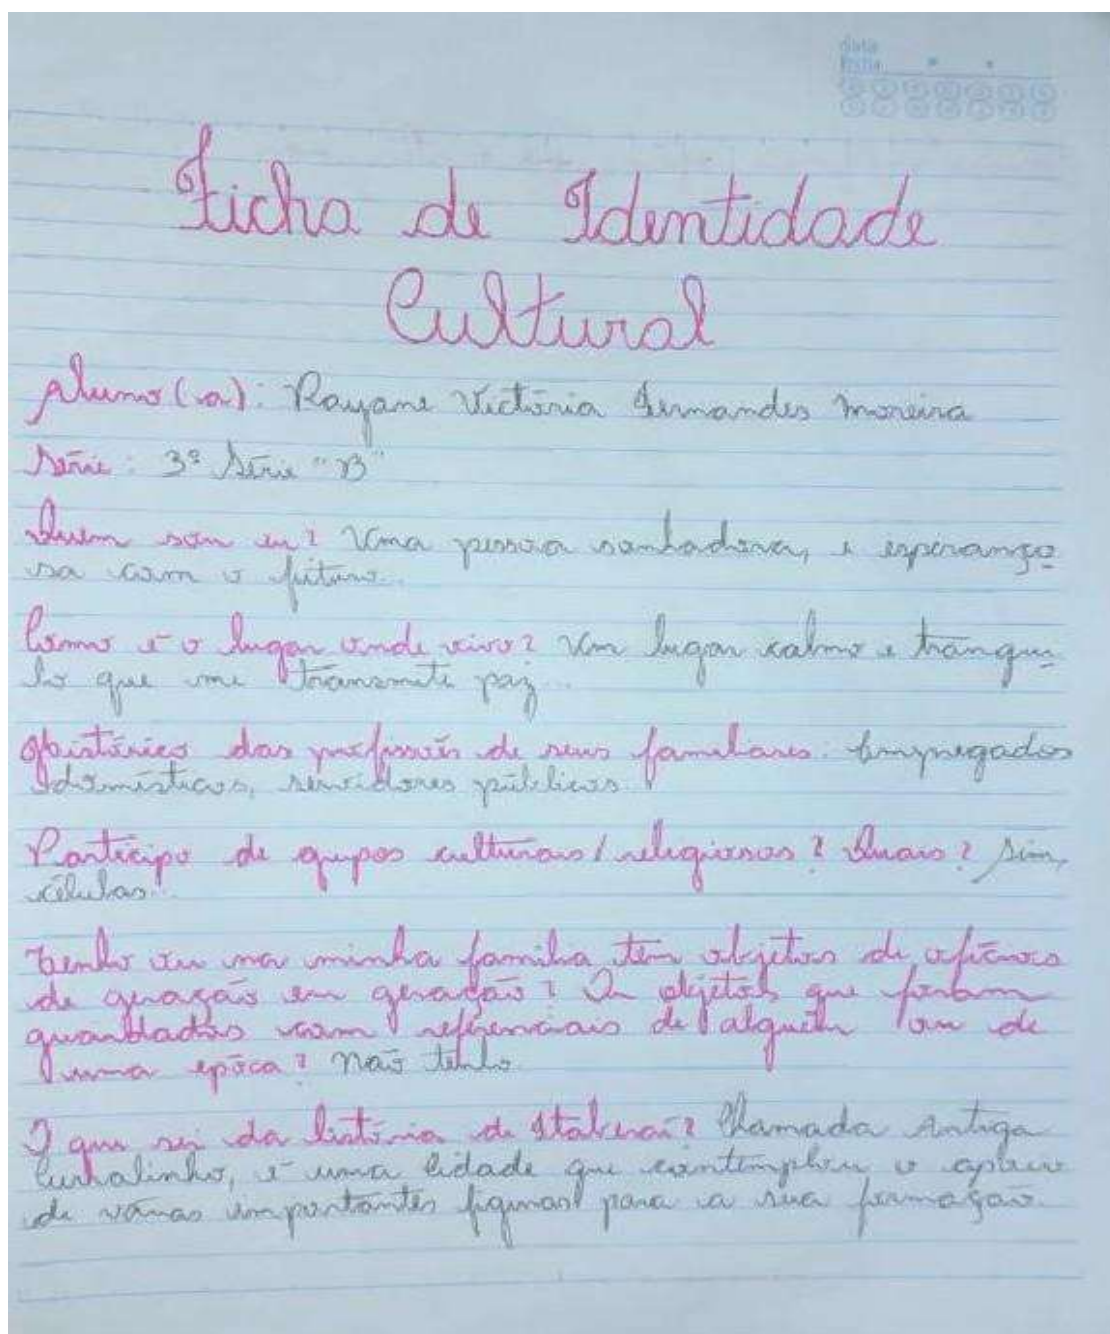 data
fecha
Ficha de Identidade
Cultural
Aluno(a): Rayane Victória Fernandes Moreira
Série: 3ª Série "B"
Quem sou eu? Uma pessoa sonhadora, e esperanço
sa com o futuro...
Como é o lugar onde vivo? Um lugar calmo e tranqui
lo que me transmite paz...
Histórico das profissões de seus familiares: Empregados
domésticos, servidores públicos.
Participo de grupos culturais/religiosos? Quais? Sim,
células...
Tenho ou na minha família tem objetos de ofícios
de geração em geração? Ou objetos que foram
guardados com referenciais de alguém ou de
uma época? Não tenho.
O que sei da história de Itaberaí? Chamada Antiga
Curralinho, é uma cidade que contemplou o apoio
de várias importantes figuras para a sua formação.